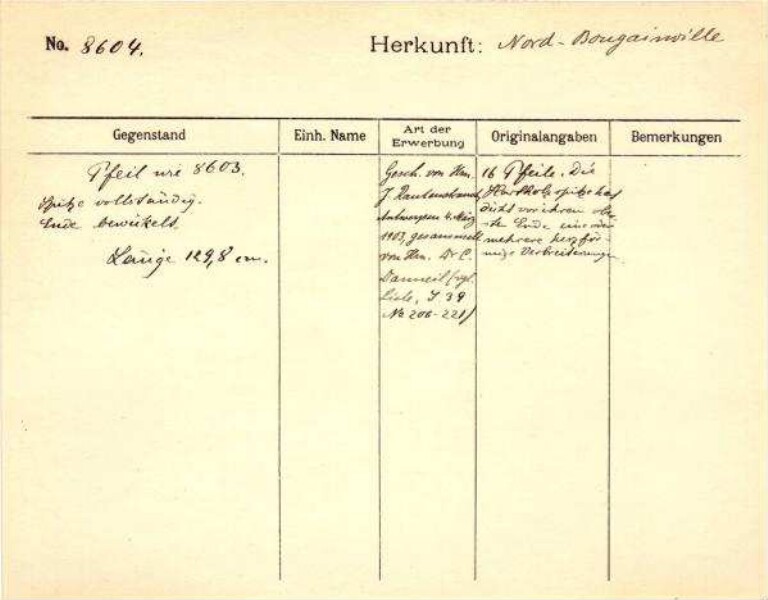 No. 8604.
Herkunft: Nord-Bougainville
Gegenstand
Einh. Name
Art der Erwerbung
Originalangaben
Bemerkungen
Pfeil wie 8603.
Spitze vollständig.
Ende bewickelt.
Länge 129,8 cm.
Gesch. von Hrn.
J. Rautenstrauch,
Antwerpen 4. März
1903, gesammelt
von Hrn. Dr C.
Danneil (vgl.
Liste, S. 39
No 206-221)
16 Pfeile. Die
Hartholzspitze hat
dicht vor ihrem obe-
Ende eine oder
mehrere herzför-
mige Verbreiterungen